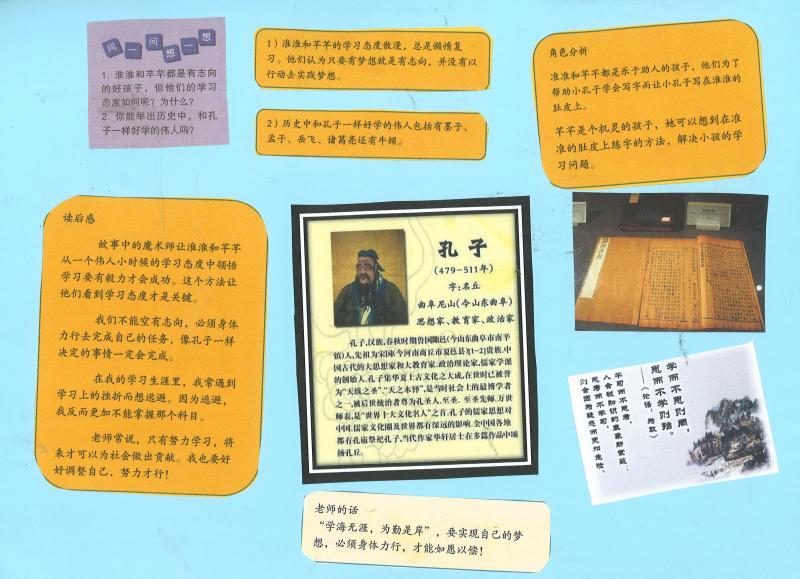 问一问 想一想
1. 淮淮和芊芊都是有志向
的好孩子，但他们的学习
态度如何呢？为什么？
2. 你能举出历史中，和孔
子一样好学的伟人吗？
1）淮淮和芊芊的学习态度散漫，总是懒惰复
习。他们认为只要有梦想就是有志向，并没有以
行动去实践梦想。
2）历史中和孔子一样好学的伟人包括有墨子、
孟子、岳飞、诸葛亮还有牛顿。
角色分析
淮淮和芊芊都是乐于助人的孩子，他们为了
帮助小孔子学会写字而让小孔子写在淮淮的
肚皮上。
芊芊是个机灵的孩子，她可以想到在淮
淮的肚皮上练字的方法，解决小孩的学
习问题。
读后感
故事中的魔术师让淮淮和芊芊
从一个伟人小时候的学习态度中领悟
学习要有毅力才会成功。这个方法让
他们看到学习态度才是关键。
我们不能空有志向，必须身体
力行去完成自己的任务，像孔子一样
决定的事情一定会完成。
在我的学习生涯里，我常遇到
学习上的挫折而想逃避。因为逃避，
我反而更加不能掌握那个科目。
老师常说，只有努力学习，将
来才可以为社会做出贡献。我也要好
好调整自己，努力才行！
孔子
(479-511年)
字:名丘
曲阜尼山(今山东曲阜)
思想家、教育家、政治家
孔子,汉族,春秋时期鲁国陬邑(今山东曲阜市南辛
镇)人,先祖为宋国(今河南商丘市夏邑县)[1-2]贵族.中
国古代的大思想家和大教育家、政治理论家,儒家学派
的创始人.孔子集华夏上古文化之大成,在世时已被誉
为“天纵之圣”、“天之木铎”,是当时社会上的最博学者
之一,被后世统治者尊为孔圣人、至圣、至圣先师、万世
师表,是“世界十大文化名人”之首.孔子的儒家思想对
中国.儒家文化圈及世界都有深远的影响.全中国各地
都有孔庙祭祀孔子,当代作家华轩居士在多篇作品中颂
扬孔丘.
学而不思则罔，
思而不学则殆。
——《论语·为政》
学习而不思考，
人会被知识的表象所蒙蔽；
思考而不学习，
则会因为疑惑而更加危险。
老师的话
“学海无涯，为勤是岸”，要实现自己的梦
想，必须身体力行，才能如愿以偿！